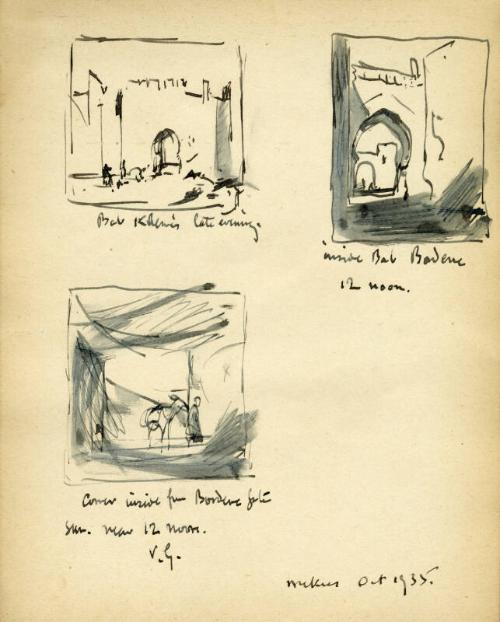 Bab Khemis late evening.
inside Bab Bardene
12 noon.
Corner inside from Bordene gate
Sun. near 12 noon.
V.G.
meknes Oct 1935.